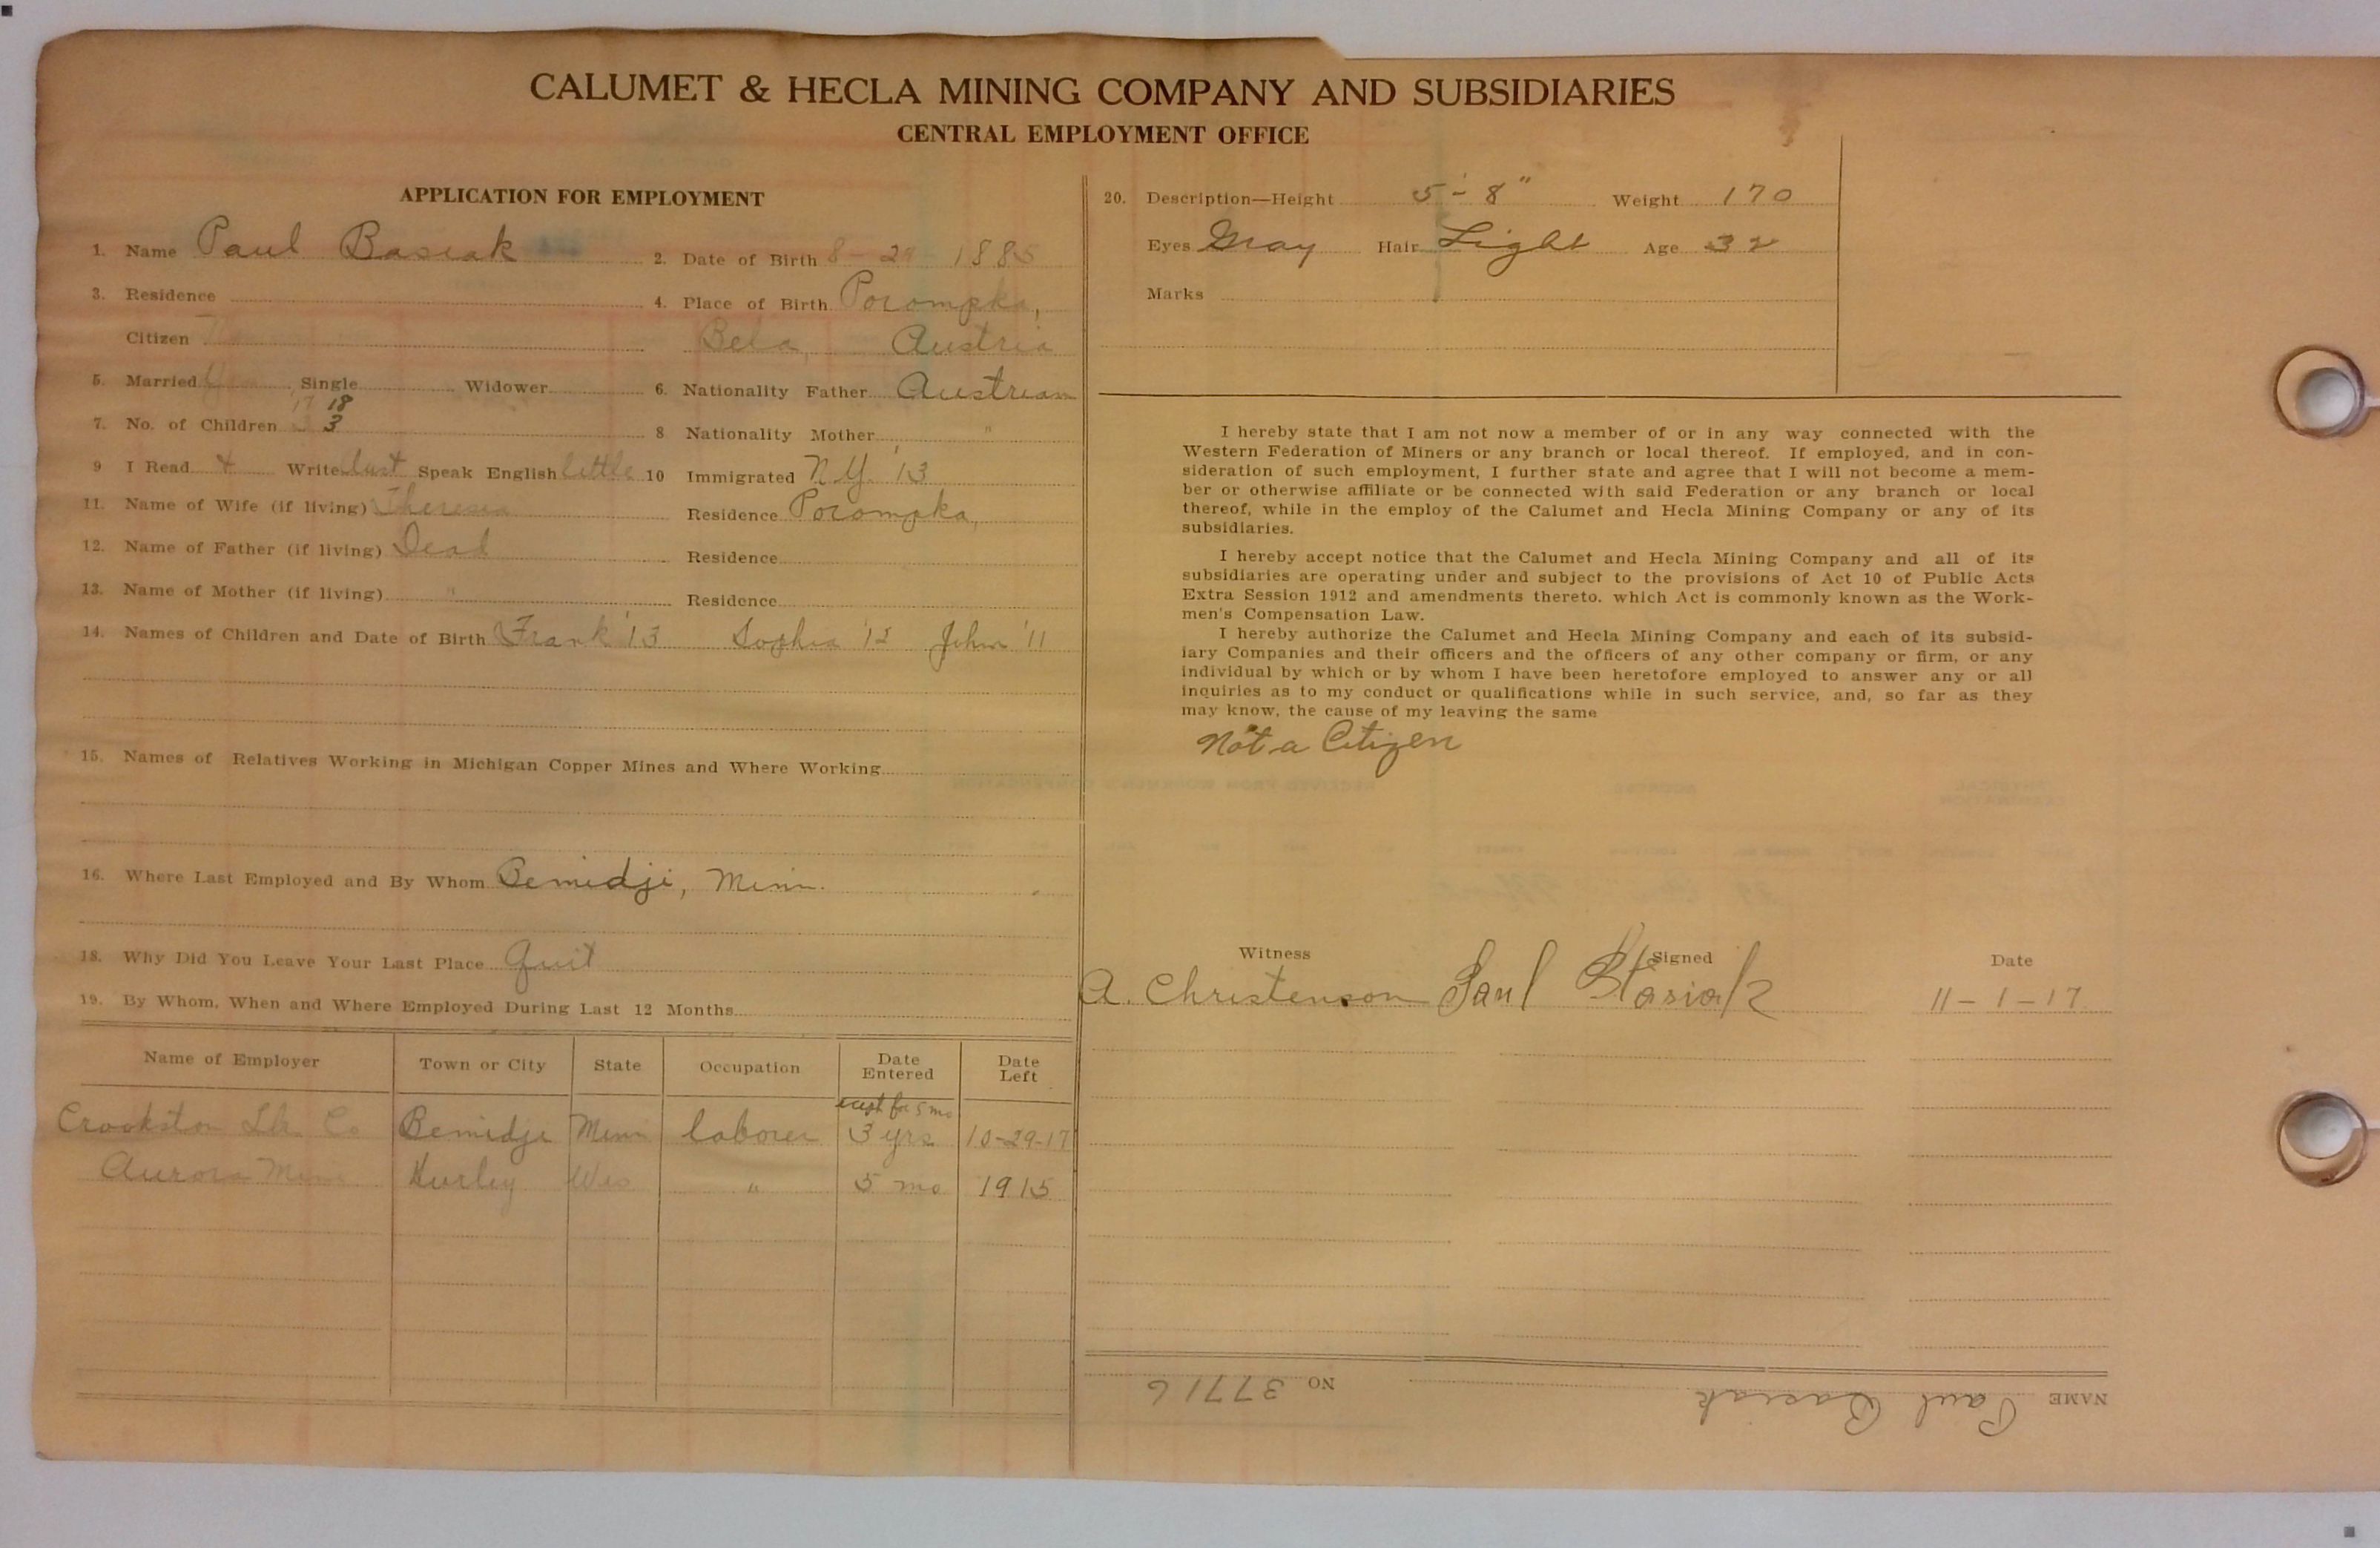 CALUMET & HECLA MINING COMPANY AND SUBSIDIARIES
CENTRAL EMPLOYMENT OFFICE
APPLICATION FOR EMPLOYMENT
1. Name Paul Basiak 2. Date of Birth 8-29 1885
3. Residence 4. Place of Birth Porompka,
Citizen No Bela, Austria
5. Married Yes Single Widower 6. Nationality Father Austrian
17 18
7. No. of Children 3 3 8 Nationality Mother "
9 I Read Write Speak English little 10 Immigrated N.Y. '13
11. Name of Wife (if living) Theresia Residence Porompka,
12. Name of Father (if living) Dead Residence
13. Name of Mother (if living) " Residence
14. Names of Children and Date of Birth Frank '13 Sophia '12 John '11
15. Names of Relatives Working in Michigan Copper Mines and Where Working
16. Where Last Employed and By Whom Bemidji, Minn.
18. Why Did You Leave Your Last Place Quit
19. By Whom, When and Where Employed During Last 12 Months
Name of Employer Town or City State Occupation Date Entered Date Left
Crookston Lbr Co Bemidji Minn laborer except for 5 mo 3 yrs 10-29-17
Aurora Hurley Wis " 5 mo 1915
20. Description—Height 5'-8" Weight 170
Eyes Gray Hair Light Age 32
Marks
I hereby state that I am not now a member of or in any way connected with the
Western Federation of Miners or any branch or local thereof. If employed, and in con-
sideration of such employment, I further state and agree that I will not become a mem-
ber or otherwise affiliate or be connected with said Federation or any branch or local
thereof, while in the employ of the Calumet and Hecla Mining Company or any of its
subsidiaries.
I hereby accept notice that the Calumet and Hecla Mining Company and all of its
subsidiaries are operating under and subject to the provisions of Act 10 of Public Acts
Extra Session 1912 and amendments thereto. which Act is commonly known as the Work-
men's Compensation Law.
I hereby authorize the Calumet and Hecla Mining Company and each of its subsid-
iary Companies and their officers and the officers of any other company or firm, or any
individual by which or by whom I have been heretofore employed to answer any or all
inquiries as to my conduct or qualifications while in such service, and, so far as they
may know, the cause of my leaving the same
Not a Citizen
Witness Signed Date
A. Christenson Paul Basiak 11-1-17
NAME Paul Basiak NO 37716